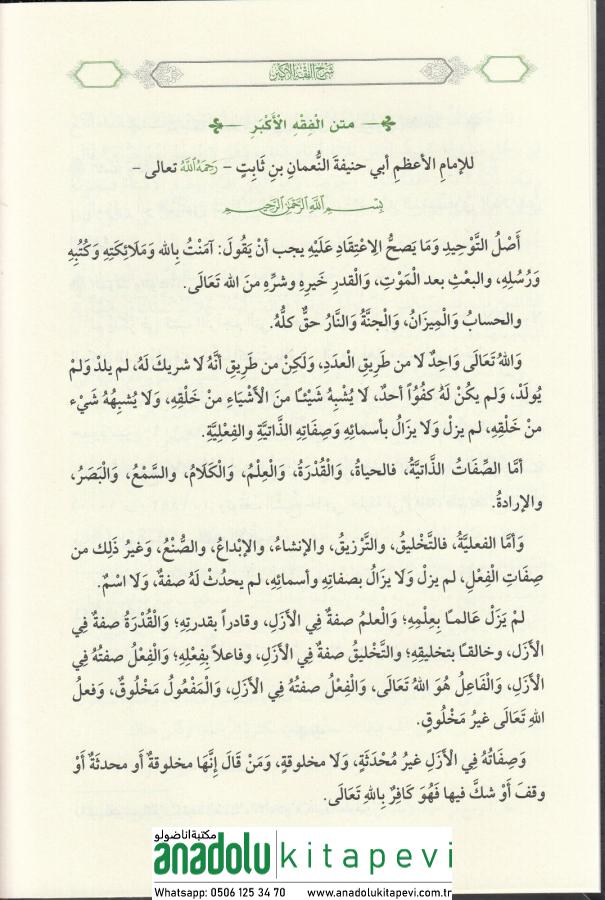 شرح الفقه الأكبر
متن الْفِقْهِ الْأَكْبَرِ
للإمامِ الأعظمِ أبي حنيفةَ النُّعمانِ بنِ ثَابِتٍ – رَحِمَهُ اللَّهُ تعالى –
بِسْمِ اللَّهِ الرَّحْمَنِ الرَّحِيمِ
أَصْلُ التَّوْحِيدِ وَمَا يَصحُّ الِاعْتِقَادِ عَلَيْهِ يجب أنْ يَقُولَ: آمَنْتُ بِالله وَمَلَائِكَتِهِ وَكُتُبِهِ
وَرُسُلِهِ، والبعْثِ بعد الْمَوْتِ، وَالْقدرِ خَيرِهِ وشرِّهِ منَ الله تَعَالَى.
والحسابُ وَالْمِيزَانُ، وَالْجنَّةُ وَالنَّارُ حقٌّ كلُّهُ.
وَاللهُ تَعَالَى وَاحِدٌ لَا من طَرِيقِ الْعدَدِ، وَلَكِنْ من طَرِيقِ أنَّهُ لَا شريكَ لَهُ، لم يلدْ وَلمْ
يُولَدْ، وَلم يكُنْ لَهُ كفُوًا أحدٌ، لَا يُشْبِهُ شَيْئًا منَ الْأَشْيَاءِ منْ خَلْقِهِ، وَلَا يُشبِهُهُ شَيْء
منْ خَلْقِهِ، لم يزلْ وَلَا يزَالُ بأسمائِهِ وَصِفَاتِهِ الذَّاتيَّةِ وَالْفِعْلِيَّةِ.
أمَّا الصِّفَاتُ الذَّاتيَّةُ، فالحياةُ، وَالْقُدْرَةُ، وَالْعِلْمُ، وَالْكَلَامُ، والسَّمْعُ، وَالْبَصَرُ،
والإرادةُ.
وَأمَّا الفعليَّةُ، فالتَّخْلِيقُ، والتَّرْزيقُ، والإنشاءُ، والإبْداعُ، والصُّنْعُ، وَغيرُ ذَلِك من
صِفَاتِ الْفِعْلِ، لم يزلْ وَلَا يزَالُ بصفاتِهِ وأسمائِهِ، لم يحدُثْ لَهُ صفةٌ، وَلَا اسْمٌ.
لمْ يَزَلْ عَالمـا بِعِلْمِهِ؛ وَالْعلمُ صفةٌ فِي الْأَزَلِ، وقادراً بقدرتِهِ؛ وَالْقُدْرَةُ صفةٌ فِي
الْأَزَلِ، وخالقـا بتخليقِهِ؛ والتَّخْلِيقُ صفةٌ فِي الْأَزَلِ، وفاعلاً بِفِعْلِهِ؛ وَالْفِعْلُ صفتُهُ فِي
الْأَزَلِ، وَالْفَاعِلُ هُوَ اللهُ تَعَالَى، وَالْفِعْلُ صفتُهُ فِي الْأَزَلِ، وَالْمَفْعُولُ مَخْلُوقٌ، وَفعلُ
اللهِ تَعَالَى غيرُ مَخْلُوقٍ.
وَصِفَاتُهُ فِي الْأَزَلِ غيرُ مُحْدَثَةٍ، وَلَا مخلوقةٍ، وَمَنْ قَالَ إنَّهَا مخلوقةٌ أَو محدثةٌ أَوْ
وقفَ أَوْ شكَّ فيها فَهُوَ كَافِرٌ بِاللهِ تَعَالَى.
مكتبة اناضولو
anadolu kitapevi
Whatsapp: 0506 125 34 70 www.anadolukitapevi.com.tr